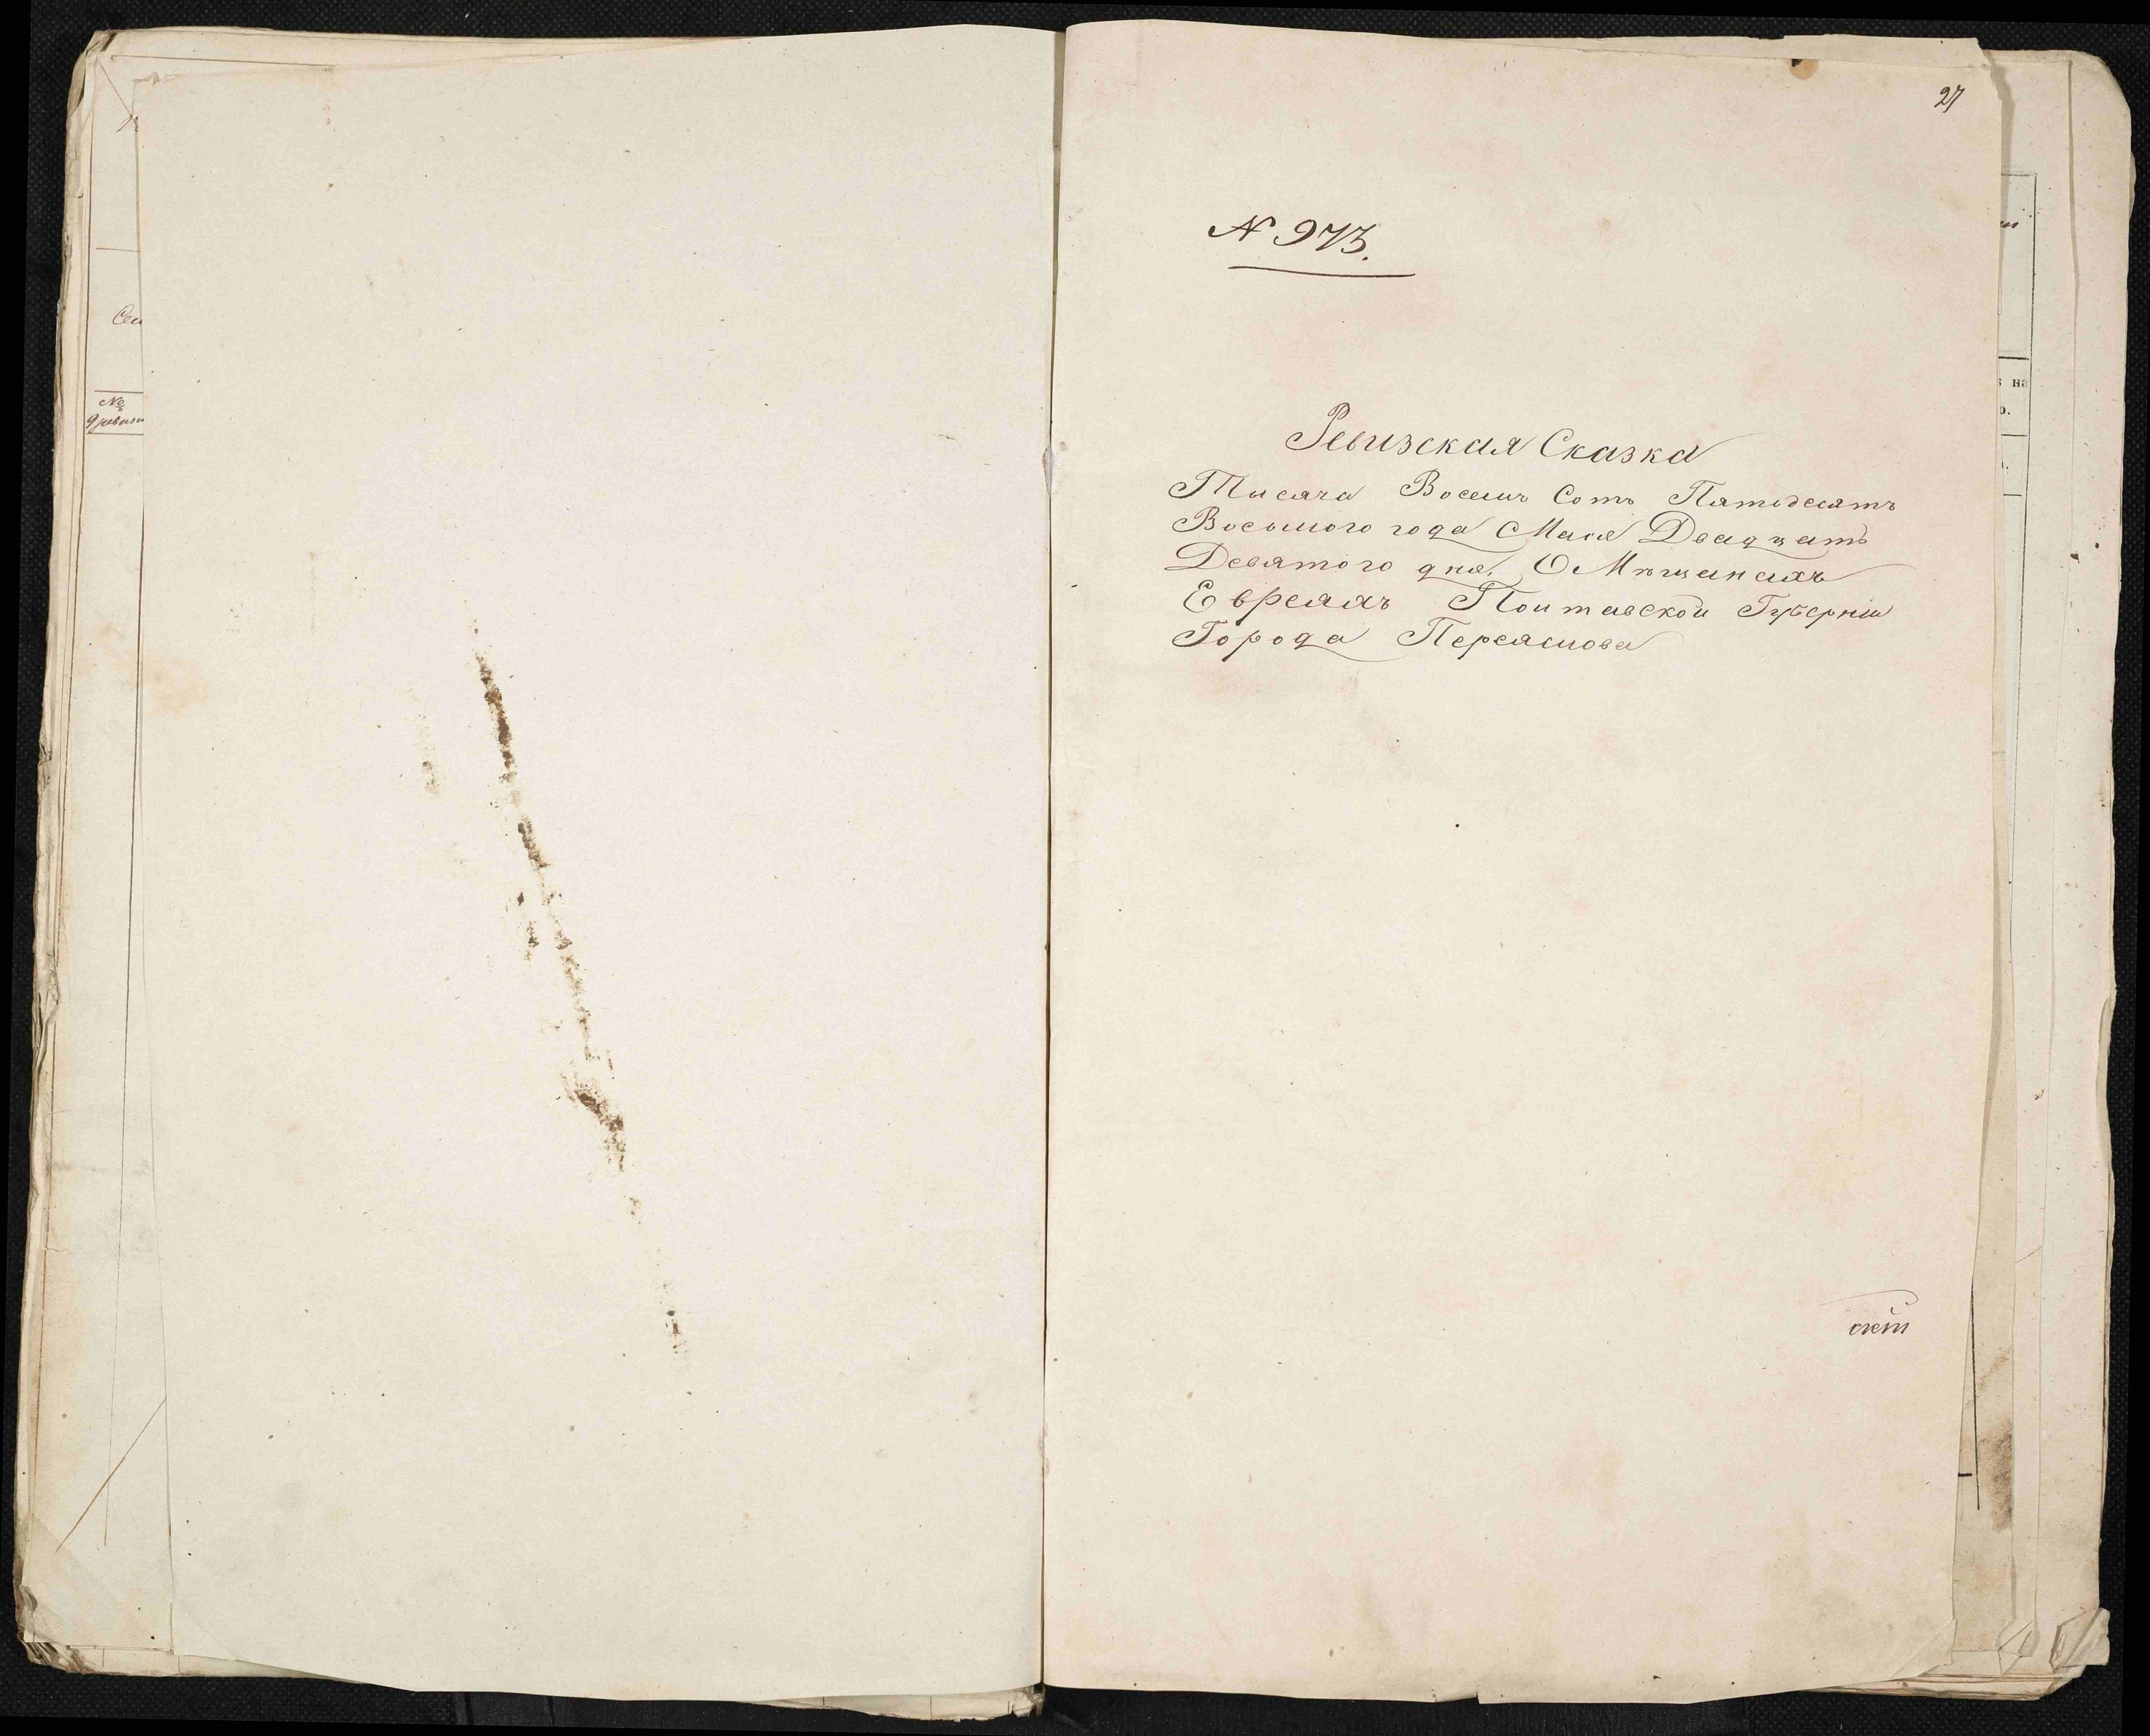 27
№ 973.
Ревизская Сказка
Тысяча Восемь Сотъ Пятьдесятъ
Восьмого года Мая Двадцать
Девятого дня. О Мѣщанахъ
Евреяхъ Полтавской Губерніи
Города Переяслова
Сем
№
9 ревиз
на